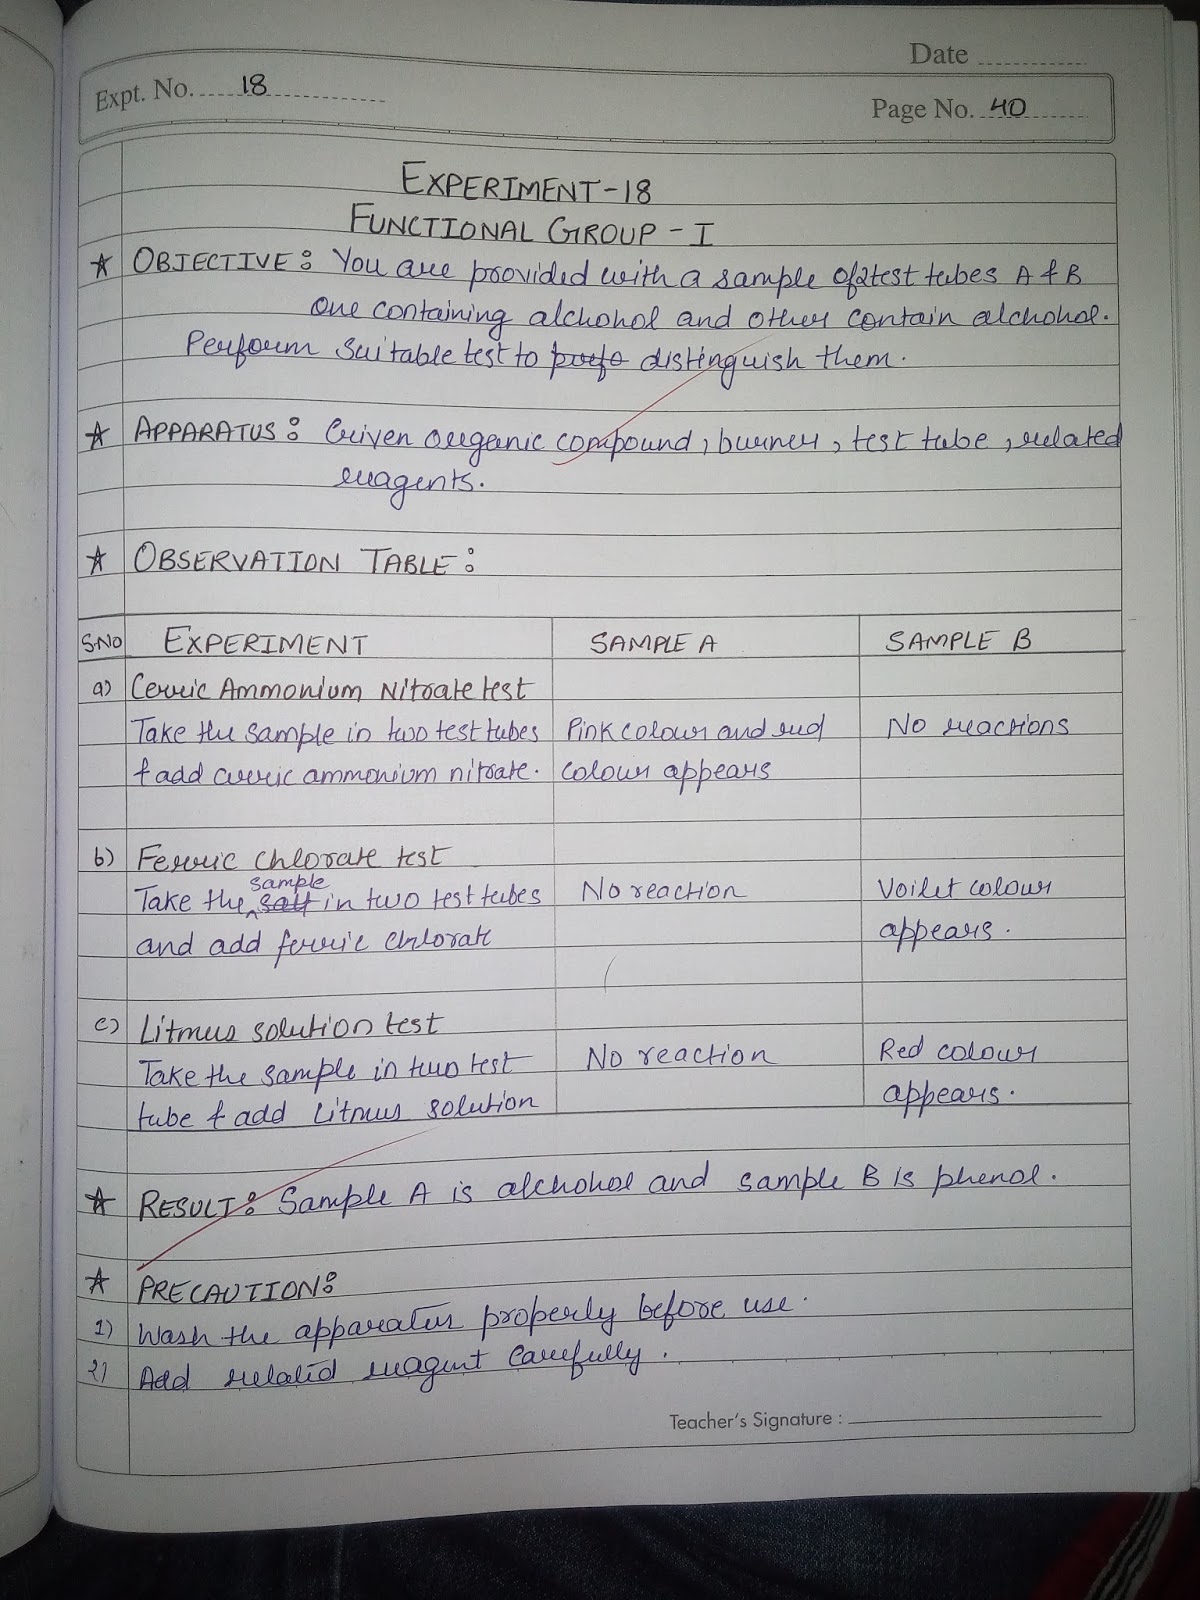 Date
Expt. No. 18
Page No. 40
EXPERIMENT-18
FUNCTIONAL GROUP - I
★ OBJECTIVE: You are provided with a sample of 2 test tubes A & B
one containing alchohol and other contain alchohol.
Perform suitable test to prefo distinguish them.
★ APPARATUS: Given organic compound, burner, test tube, related
reagents.
★ OBSERVATION TABLE:
S.NO EXPERIMENT SAMPLE A SAMPLE B
a) Cerric Ammonium Nitrate test
Take the sample in two test tubes Pink colour and red No reactions
& add cerric ammonium nitrate. colour appears
b) Ferric chlorate test
sample
Take the salt in two test tubes No reaction Voilet colour
and add ferric chlorate appears.
c) Litmus solution test
Take the sample in two test No reaction Red colour
tube & add Litmus solution appears.
★ RESULT: Sample A is alchohol and sample B is phenol.
★ PRECAUTION:
1) Wash the apparatus properly before use.
2) Add related reagent carefully.
Teacher's Signature :